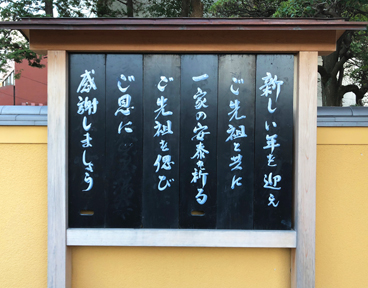 新しい年を迎え
ご先祖と共に
一家の安泰を祈る
ご先祖を偲び
ご恩に
感謝しましょう